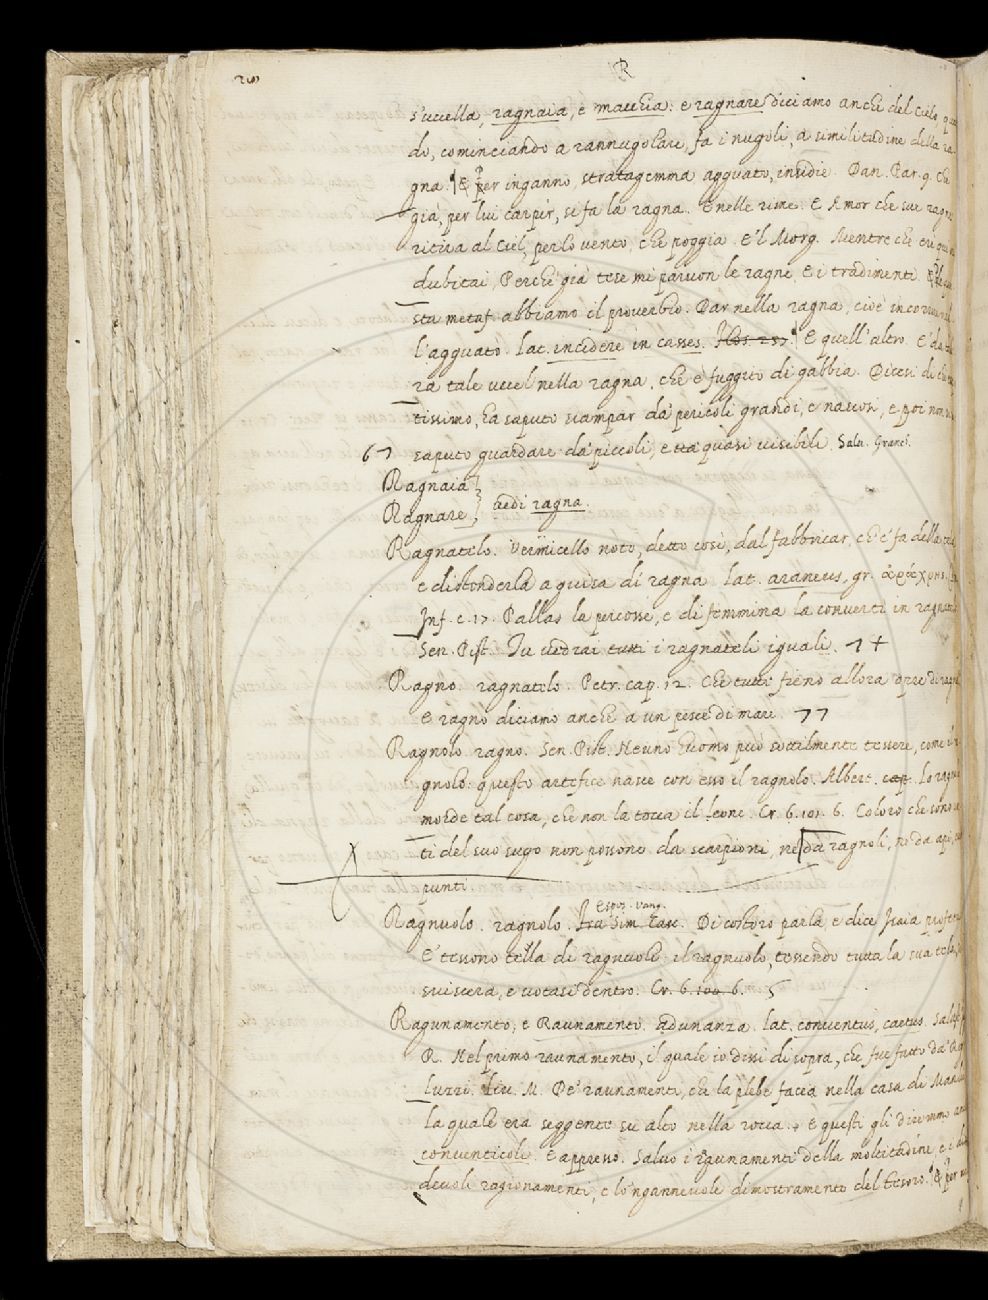 R
s'uccella, ragnaia, e macchia: e ragnare diciamo anche del Cielo
do, cominciando a rannugolare, fa i nugoli, a similitudine della ra-
gna. E per inganno, stratagemma agguato, insidie. Dan. Par. 9. Che
già, per lui carpir, si fa la ragna. E nelle rime. E Amor che sue ragne
ritira al Ciel, perlo vento, che poggia. E'l Morg. Mentre ch' era
dubitai, Perche già tese mi parvon le ragne, E i tradimenti.
sta metaf. abbiamo il proverbio. Dar nella ragna, cioè incorrer
l'agguato. lat. incidere in casses. E quell'altro. E' da
ra tale uccel nella ragna, che è fuggito di gabbia. Dicesi di chi
tissimo, ha saputo scampar da' pericoli grandi, e nascosi, e poi non
67 saputo guardare da' piccoli, e quasi visibili. Salu. Granch.
Ragnaia
Ragnare vedi ragna.
Ragnatelo. Vermicello noto, detto così, dal fabbricar, ch' e' fa della
e distenderla a guisa di ragna lat. araneus, gr. ἀράχνης.
Inf. c. 17. Pallas la percosse, e di femmina la convertì in ragnatelo
Sen. Pist. Tu vedrai tutti i ragnateli iguali. 7 +
Ragno. ragnatelo. Petr. cap. 12. Che tutti fieno allora opre di ragni
E ragno diciamo anche a un pesce di mare. 77
Ragnolo. ragno. Sen. Pist. Neuno huomo può sottilmente tessere, come il
gnolo: questo artefice nasce con esso il ragnolo. Albert. cap. Lo ragnolo
morde tal cosa, che non la tocca il leone. Cr. 6. 101. 6. Coloro che sono
ti del suo sugo non possono da scarpioni, ne da ragnoli, ne da api,
punti
Espos. Vang.
Ragnuolo. ragnolo. Fra Sim. Casc. Di costoro parla, e dice Isaia profeta
E' tessono tella di ragnuole: il ragnuolo, tessendo tutta la sua tela,
sviscera, e votasi dentro. Cr. 6. 100. 6. 5
Ragunamento, e Raunamento. adunanza. lat. conventus, caetus.
R. Nel primo raunamento, il quale io dissi di sopra, che fue fatto da'
luzzi. Liv. M. De' raunamenti, che la plebe facia nella casa di
la quale era seggente su alto nella rocca. E questi gli dicemmo
conventicoli. E appresso. Salvo i raunamenti della moltitudine, e i
devoli ragionamenti, e lo'ngannevole dimostramento del tesoro. E per